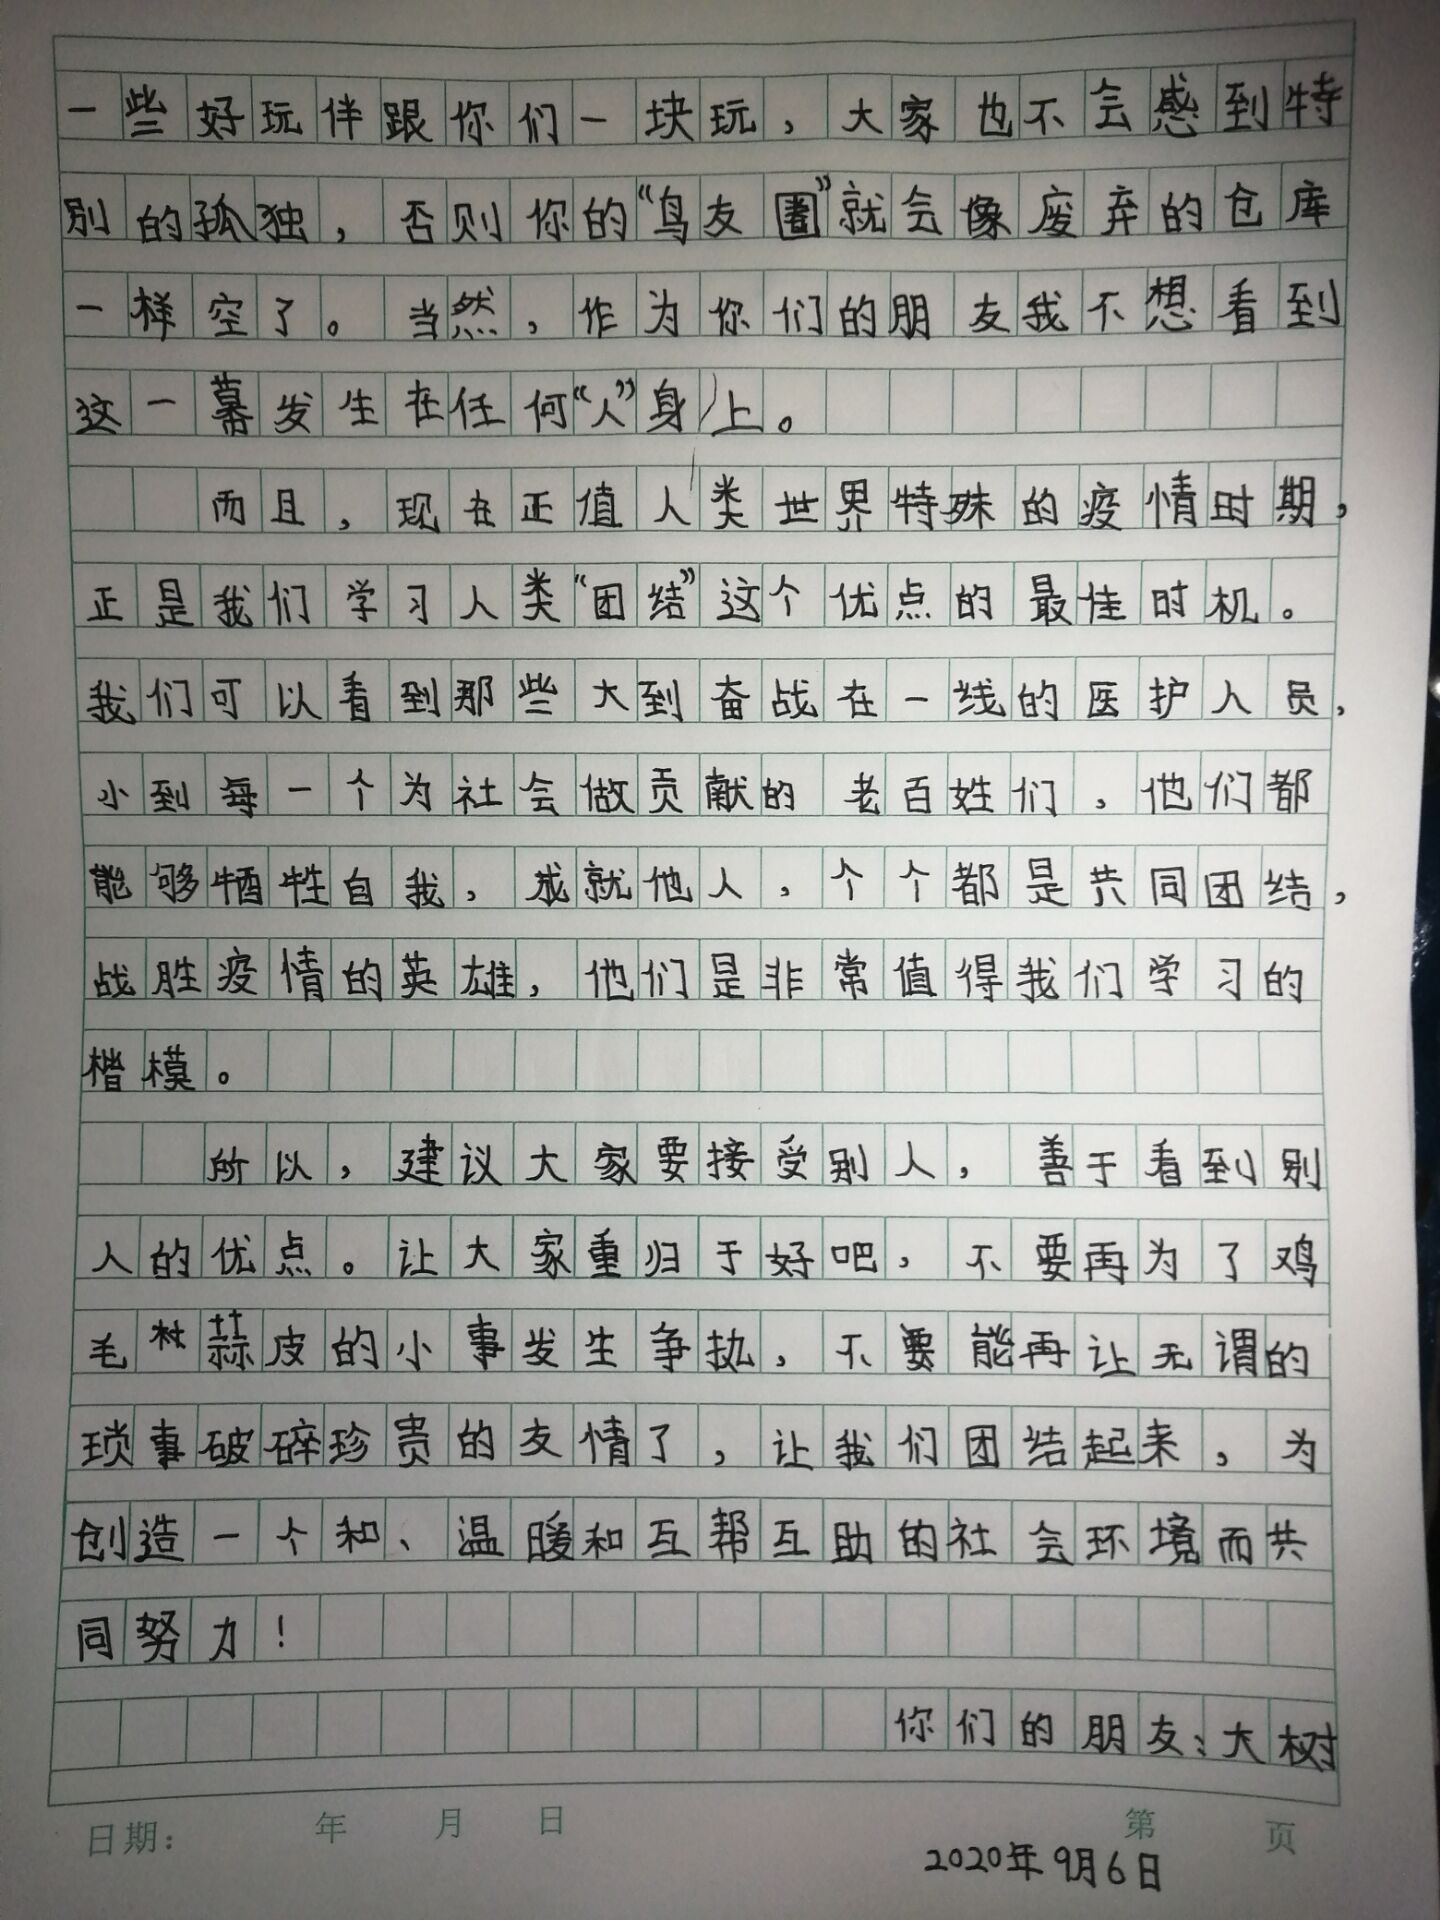 一些好玩伴跟你们一块玩，大家也不会感到特
别的孤独，否则你的“鸟友圈”就会像废弃的仓库
一样空了。当然，作为你们的朋友我不想看到
这一幕发生在任何“人”身上。
而且，现在正值人类世界特殊的疫情时期，
正是我们学习人类“团结”这个优点的最佳时机。
我们可以看到那些大到奋战在一线的医护人员，
小到每一个为社会做贡献的老百姓们，他们都
能够牺牲自我，成就他人，个个都是共同团结，
战胜疫情的英雄，他们是非常值得我们学习的
楷模。
所以，建议大家要接受别人，善于看到别
人的优点。让大家重归于好吧，不要再为了鸡
毛蒜皮的小事发生争执，不要能再让无谓的
琐事破碎珍贵的友情了，让我们团结起来，为
创造一个和、温暖和互帮互助的社会环境而共
同努力！
你们的朋友：大树
日期： 年 月 日 第 页
2020年9月6日